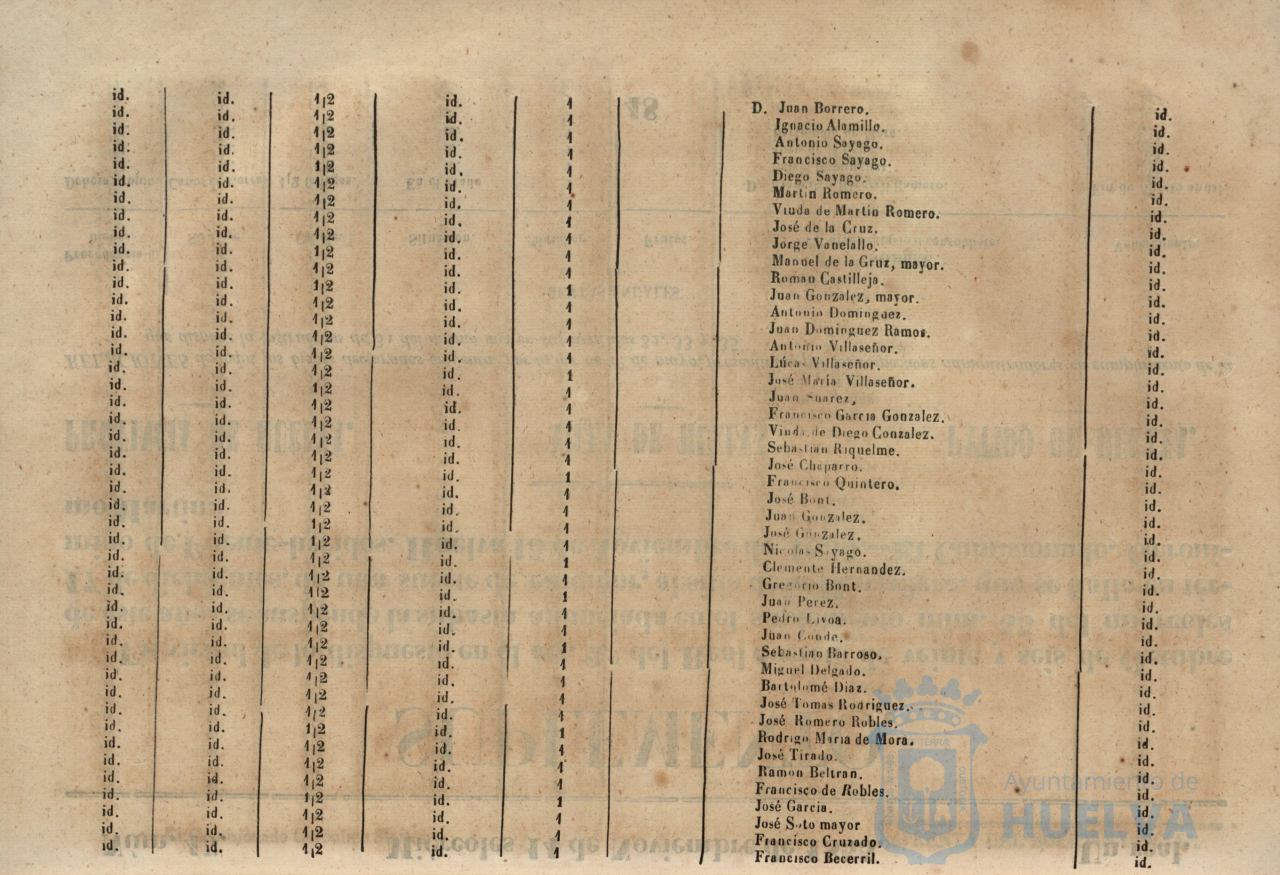 id. id. 1|2 id. 1 D. Juan Borrero. id.
id. id. 1|2 id. 1 Ignacio Alamillo. id.
id. id. 1|2 id. 1 Antonio Sayago. id.
id. id. 1|2 id. 1 Francisco Sayago. id.
id. id. 1|2 id. 1 Diego Sayago. id.
id. id. 1|2 id. 1 Martin Romero. id.
id. id. 1|2 id. 1 Viuda de Martin Romero. id.
id. id. 1|2 id. 1 José de la Cruz. id.
id. id. 1|2 id. 1 Jorge Vanelallo. id.
id. id. 1|2 id. 1 Manuel de la Gruz, mayor. id.
id. id. 1|2 id. 1 Roman Castilleja. id.
id. id. 1|2 id. 1 Juan Gonzalez, mayor. id.
id. id. 1|2 id. 1 Antonio Dominguez. id.
id. id. 1|2 id. 1 Juan Dominguez Ramos. id.
id. id. 1|2 id. 1 Antonio Villaseñor. id.
id. id. 1|2 id. 1 Lúcas Villaseñor. id.
id. id. 1|2 id. 1 José María Villaseñor. id.
id. id. 1|2 id. 1 Juan Suarez, id.
id. id. 1|2 id. 1 Francisco Garcia Gonzalez. id.
id. id. 1|2 id. 1 Viuda de Diego Conzalez. id.
id. id. 1|2 id. 1 Sebastian Riquelme. id.
id. id. 1|2 id. 1 José Chaparro. id.
id. id. 1|2 id. 1 Francisco Quintero. id.
id. id. 1|2 id. 1 José Bont. id.
id. id. 1|2 id. 1 Juan Gonzalez. id.
id. id. 1|2 id. 1 José Gonzalez. id.
id. id. 1|2 id. 1 Nicolas Sayago. id.
id. id. 1|2 id. 1 Clemente Hernandez. id.
id. id. 1|2 id. 1 Gregorio Bont. id.
id. id. 1|2 id. 1 Juan Perez. id.
id. id. 1|2 id. 1 Pedro Livoa. id.
id. id. 1|2 id. 1 Juan Conde. id.
id. id. 1|2 id. 1 Sebastian Barroso. id.
id. id. 1|2 id. 1 Miguel Delgado. id.
id. id. 1|2 id. 1 Bartolomé Diaz. id.
id. id. 1|2 id. 1 José Tomas Rodriguez. id.
id. id. 1|2 id. 1 José Romero Robles. id.
id. id. 1|2 id. 1 Rodrigo Maria de Mora. id.
id. id. 1|2 id. 1 José Tirado. id.
id. id. 1|2 id. 1 Ramon Beltran. id.
id. id. 1|2 id. 1 Francisco de Robles. id.
id. id. 1|2 id. 1 José Garcia. id.
id. id. 1|2 id. 1 José Soto mayor id.
id. id. 1|2 id. 1 Francisco Cruzado. id.
id. id. 1|2 id. 1 Francisco Becerril. id.
Ayuntamiento de
HUELVA